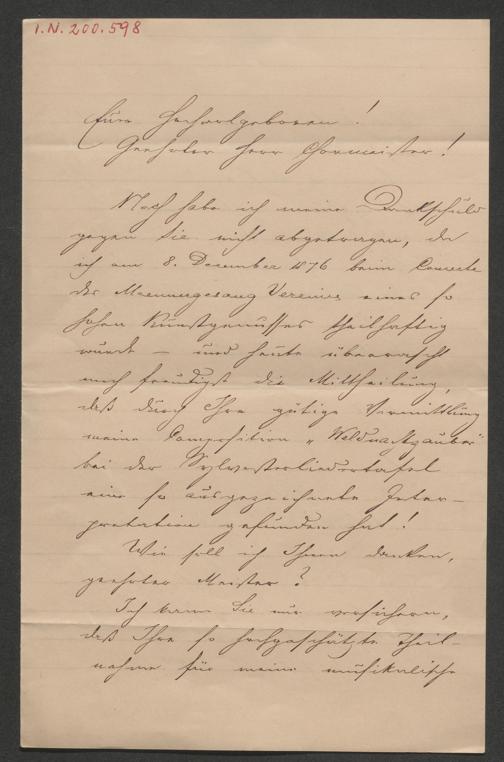 I.N. 200.598
Euer Hochwohlgeboren!
Geehrter Herr Chormeister!
Noch habe ich meine Dankschuld
gegen Sie nicht abgetragen, da
ich am 8. December 1876 beim Concerte
des Maennergesang Vereines eines so
hohen Kunstgenusses theilhaftig
wurde – und heute überrascht
mich freudigst die Mittheilung,
daß durch Ihre gütige Vermittlung
meine Composition „Waldnachtzauber"
bei der Sylvesterliedertafel
eine so ausgezeichnete Inter-
pretation gefunden hat!
Wie soll ich Ihnen danken,
geehrter Meister?
Ich kann Sie nur versichern,
daß Ihre so hochgeschätzte Theil-
nahme für meine musikalische